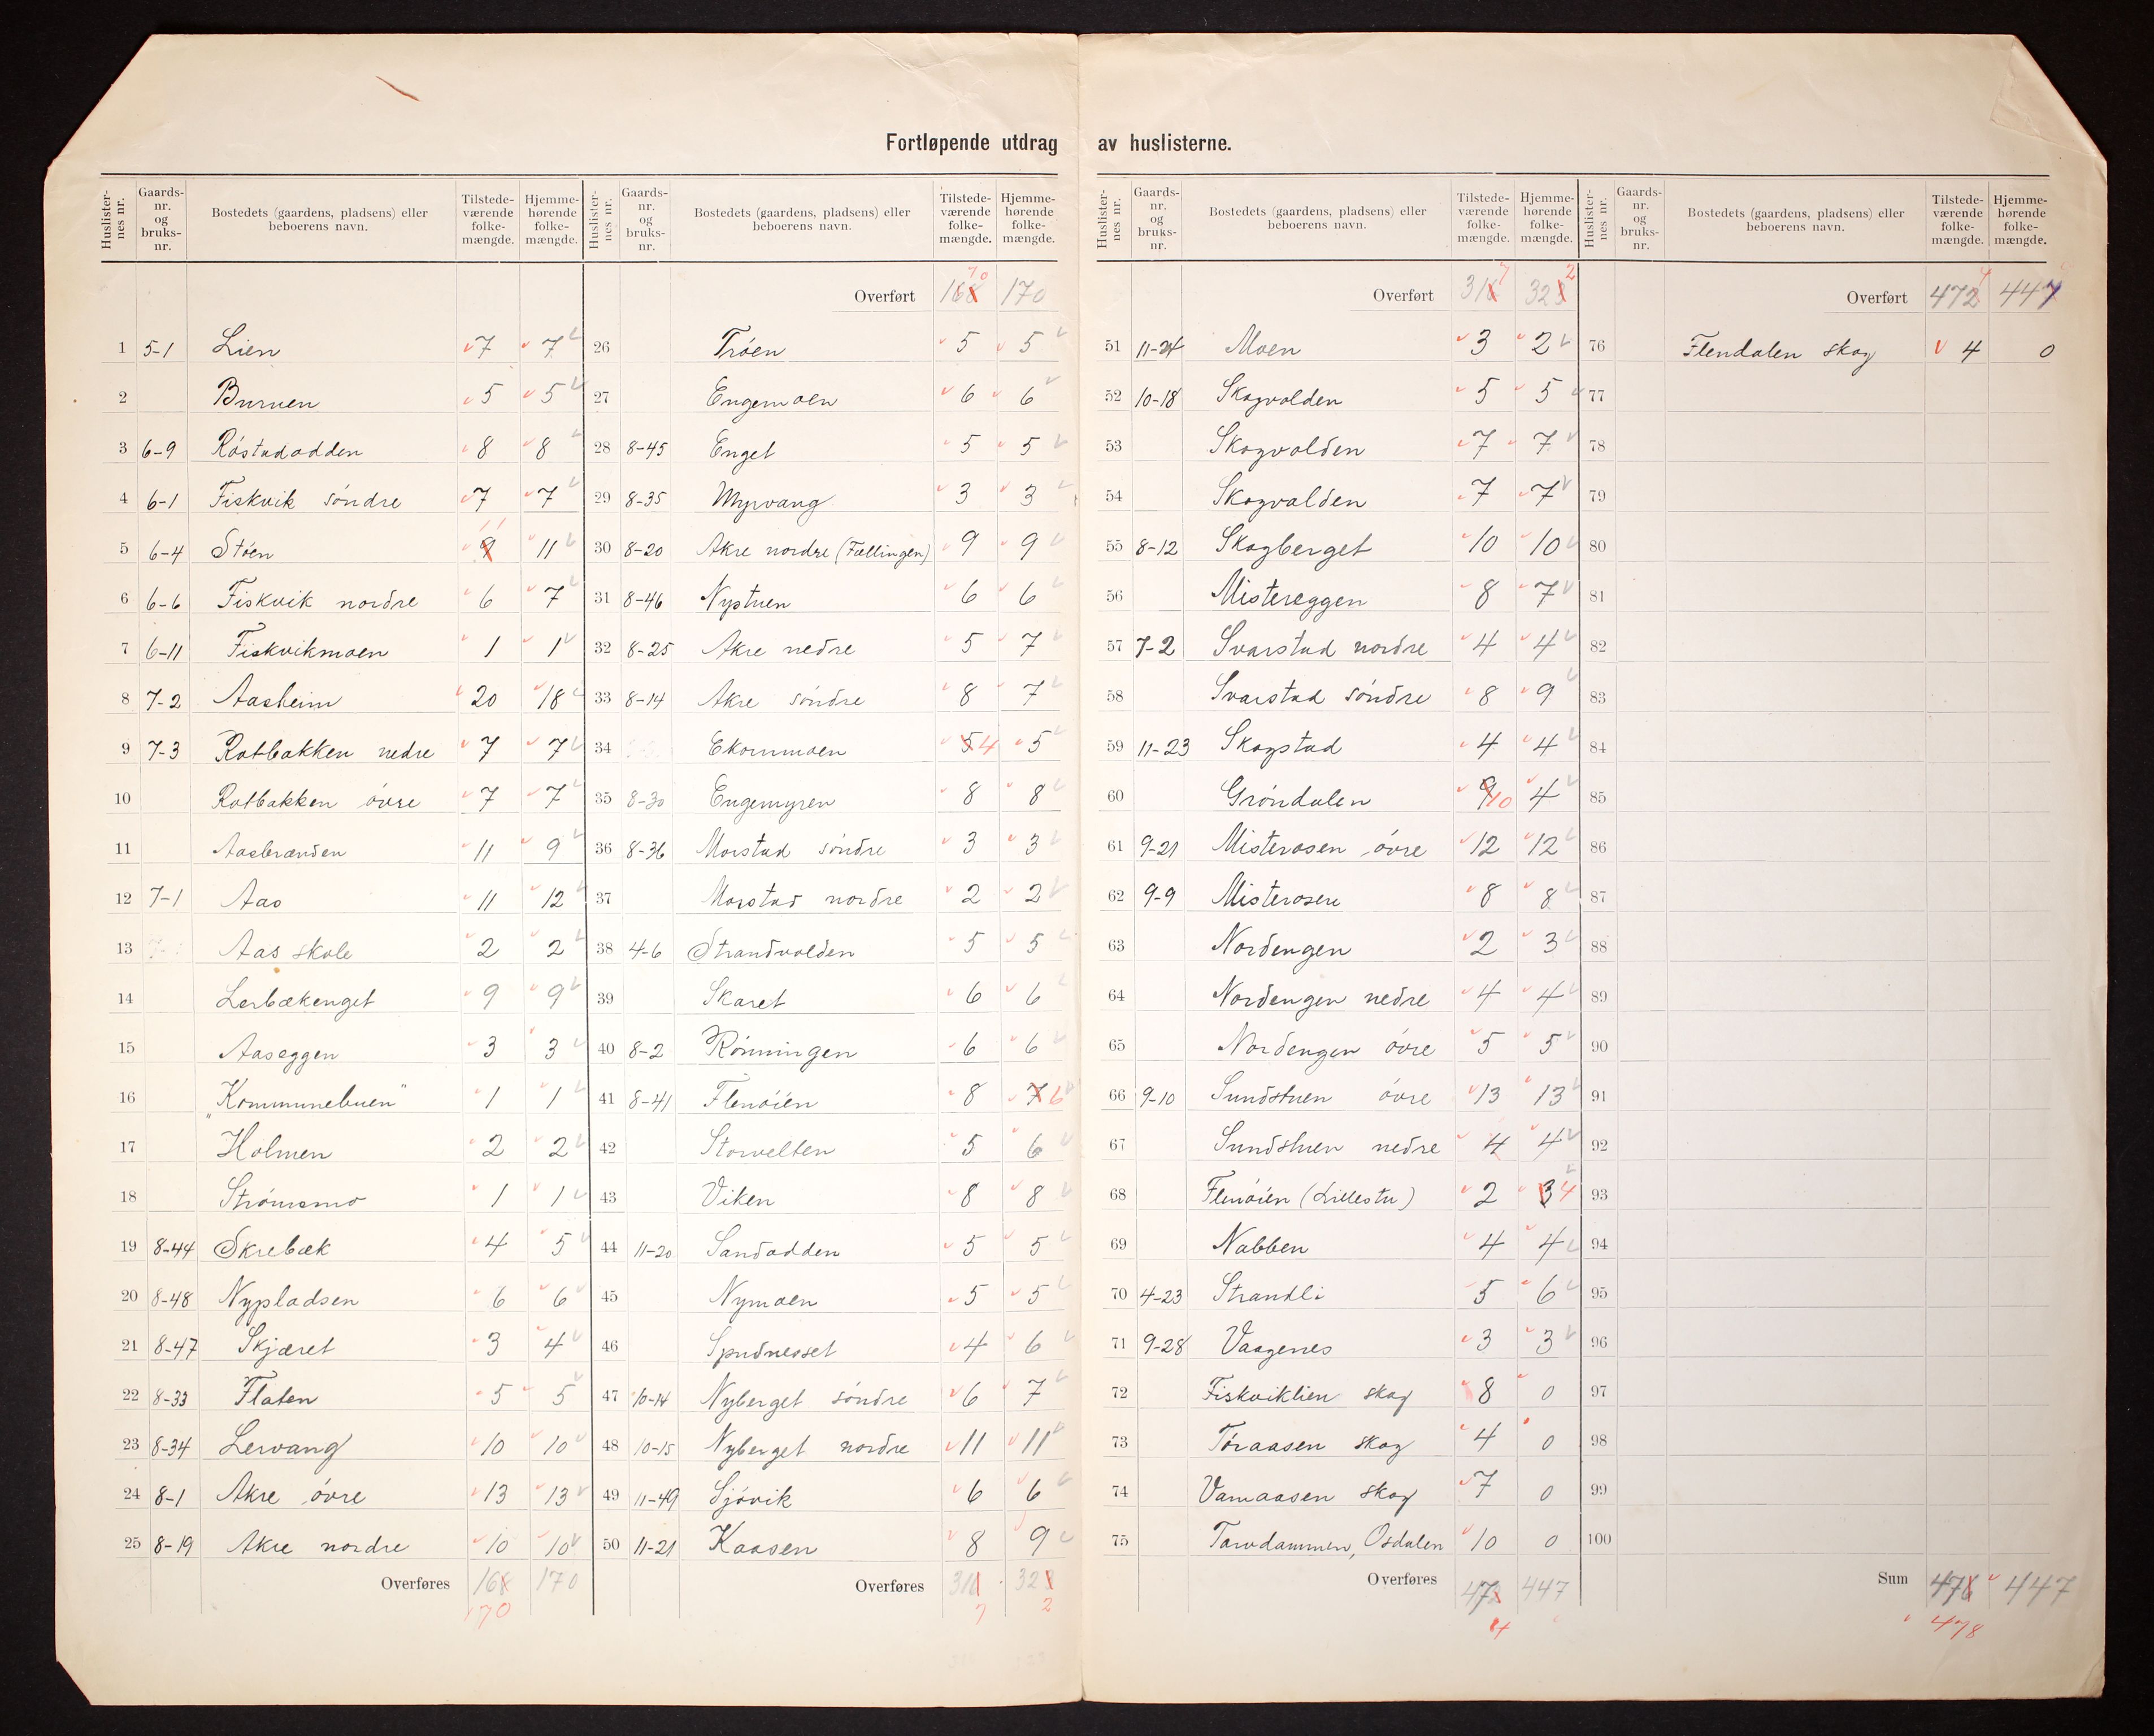 Fortløpende utdrag av huslisterne.
Huslisternes nr. Gaardsnr. og bruksnr. Bostedets (gaardens, pladsens) eller beboerens navn. Tilstedeværende folkemængde. Hjemmehørende folkemængde.
1 5-1 Lien 7 7
2 Buruen 5 5
3 6-9 Røstadodden 8 8
4 6-1 Fiskvik søndre 7 7
5 6-4 Støen 9 11 11
6 6-6 Fiskvik nordre 6 7
7 6-11 Fiskvikmoen 1 1
8 7-2 Aasheim 20 18
9 7-3 Rotbakken nedre 7 7
10 Rotbakken øvre 7 7
11 Aasbrænden 11 9
12 7-1 Aas 11 12
13 Aas skole 2 2
14 Lerbækenget 9 9
15 Aaseggen 3 3
16 „Kommunebuen" 1 1
17 Holmen 2 2
18 Strømsmo 1 1
19 8-44 Skrebæk 4 5
20 8-48 Nypladsen 6 6
21 8-47 Skjæret 3 4
22 8-33 Flaten 5 5
23 8-34 Lervang 10 10
24 8-1 Akre øvre 13 13
25 8-19 Akre nordre 10 10
Overføres 168 170
70
Huslisternes nr. Gaardsnr. og bruksnr. Bostedets (gaardens, pladsens) eller beboerens navn. Tilstedeværende folkemængde. Hjemmehørende folkemængde.
70
Overført 168 170
26 Trøen 5 5
27 Engemoen 6 6
28 8-45 Enget 5 5
29 8-35 Myrvang 3 3
30 8-20 Akre nordre (Fællingen) 9 9
31 8-46 Nystuen 6 6
32 8-25 Akre nedre 5 7
33 8-14 Akre søndre 8 7
34 Ekornmoen 5 4 5
35 8-30 Engemyren 8 8
36 8-36 Morstad søndre 3 3
37 Morstad nordre 2 2
38 4-6 Strandvolden 5 5
39 Skaret 6 6
40 8-2 Rønningen 6 6
41 8-41 Flenøien 8 7 6
42 Storvelten 5 6
43 Viken 8 8
44 11-20 Sandodden 5 5
45 Nymoen 5 5
46 Spudnesset 4 6
47 10-14 Nyberget søndre 6 7
48 10-15 Nyberget nordre 11 11
49 11-49 Sjøvik 6 6
50 11-21 Kaasen 8 9
Overføres 318 323
7 2
Huslisternes nr. Gaardsnr. og bruksnr. Bostedets (gaardens, pladsens) eller beboerens navn. Tilstedeværende folkemængde. Hjemmehørende folkemængde.
7 2
Overført 318 323
51 11-24 Moen 3 2
52 10-18 Skogvolden 5 5
53 Skogvolden 7 7
54 Skogvolden 7 7
55 8-12 Skogberget 10 10
56 Mistereggen 8 7
57 7-2 Svarstad nordre 4 4
58 Svarstad søndre 8 9
59 11-23 Skogstad 4 4
60 Grøndalen 9 10 4
61 9-21 Misterosen øvre 12 12
62 9-9 Misterosen 8 8
63 Nordengen 2 3
64 Nordengen nedre 4 4
65 Nordengen øvre 5 5
66 9-10 Sundstuen øvre 13 13
67 Sundstuen nedre 4 4
68 Flenøien (Lillestu) 2 3 4
69 Nabben 4 4
70 4-23 Strandli 5 6
71 9-28 Vaagenes 3 3
72 Fiskviklien skog 8 0
73 Føraasen skog 4 0
74 Varnaasen skog 7 0
75 Tarvdammen, Osdalen 10 0
Overføres 472 447
4
Huslisternes nr. Gaardsnr. og bruksnr. Bostedets (gaardens, pladsens) eller beboerens navn. Tilstedeværende folkemængde. Hjemmehørende folkemængde.
4
Overført 472 447
76 Flendalen skog 4 0
77
78
79
80
81
82
83
84
85
86
87
88
89
90
91
92
93
94
95
96
97
98
99
100
Sum 476 447
478